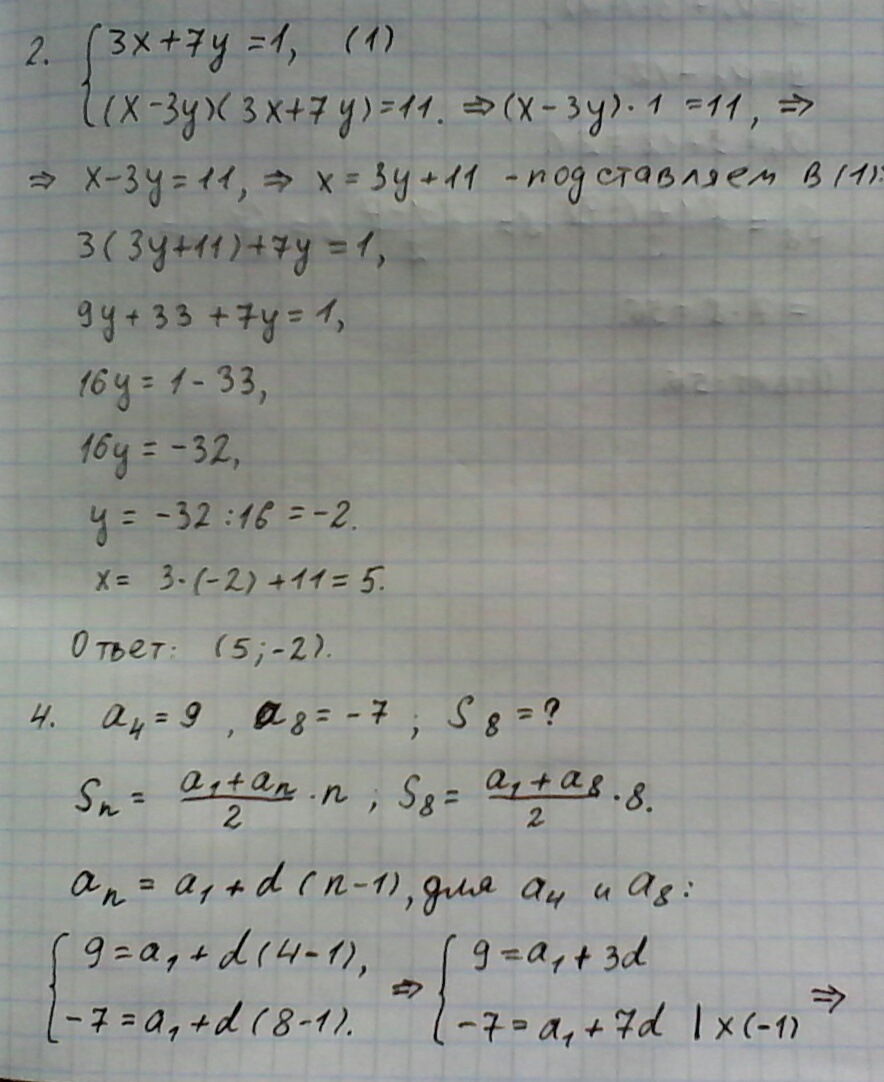 2. { 3x+7y=1, (1)
(x-3y)(3x+7y)=11. ⇒(x-3y)·1=11, ⇒
⇒ x-3y=11, ⇒ x=3y+11 -подставляем в (1):
3(3y+11)+7y=1,
9y+33+7y=1,
16y=1-33,
16y=-32,
y=-32:16=-2.
x=3·(-2)+11=5.
Ответ: (5;-2).
4. a₄=9, a₈=-7; S₈=?
Sₙ=(a₁+aₙ)/2·n; S₈=(a₁+a₈)/2·8.
aₙ=a₁+d(n-1), для a₄ и a₈:
{ 9=a₁+d(4-1), ⇒ { 9=a₁+3d ⇒
-7=a₁+d(8-1). -7=a₁+7d |x(-1)